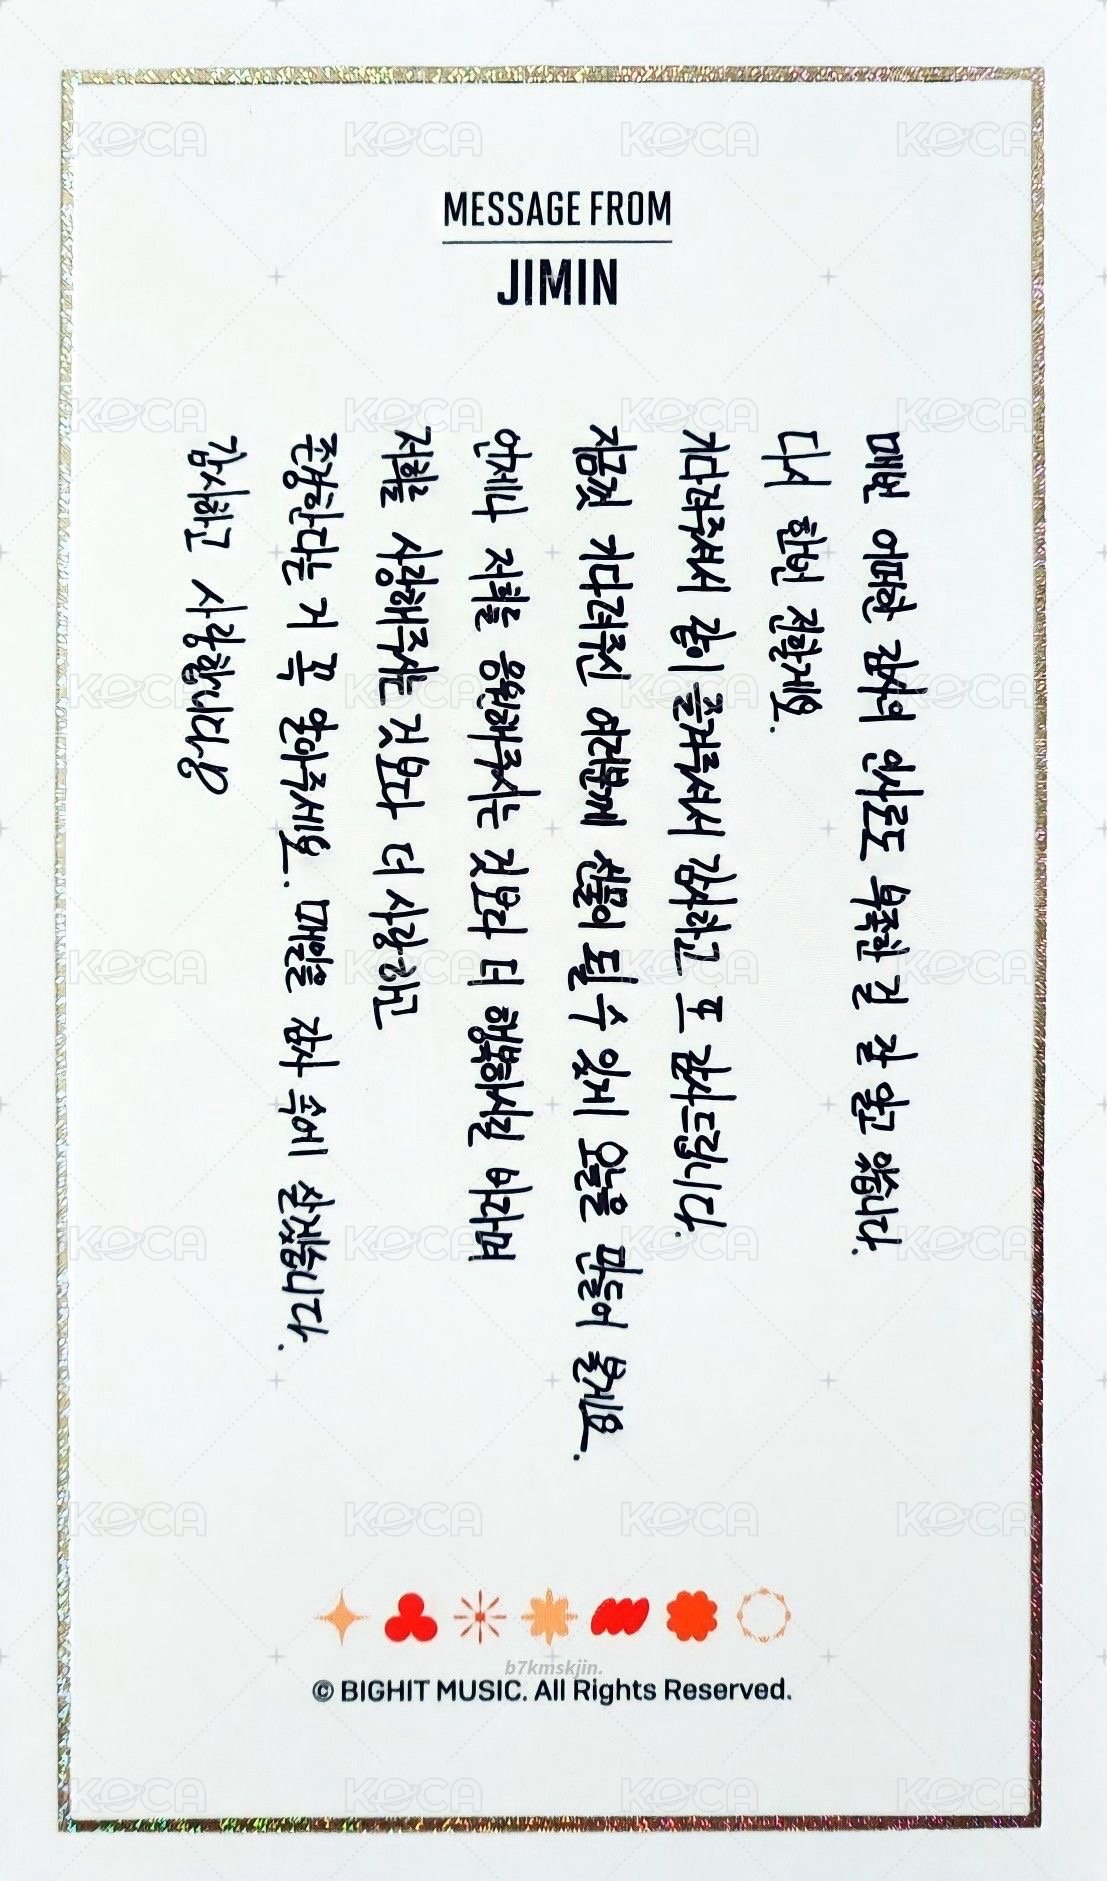 MESSAGE FROM
JIMIN
매번 어떠한 감사의 인사로도 부족한 걸 잘 알고 있습니다.
다시 한번 전할게요.
기다려주셔서 같이 즐겨주셔서 감사하고 또 감사드립니다.
지금껏 기다려주신 여러분께 선물이 될 수 있게 오늘을 만들어 볼게요.
언제나 저희를 응원해주시는 것보다 더 행복하시길 바라며
저희를 사랑해주시는 것보다 더 사랑하고
존경한다는 거 꼭 알아주세요. 매일을 감사 속에 살겠습니다.
감사하고 사랑합니다
b7kmskjin.
© BIGHIT MUSIC. All Rights Reserved.
KOCA